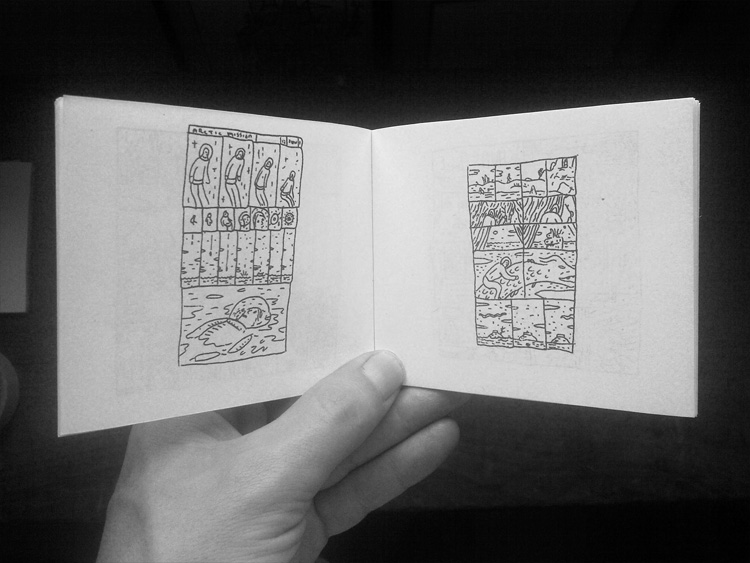 ARCTIC MISSION